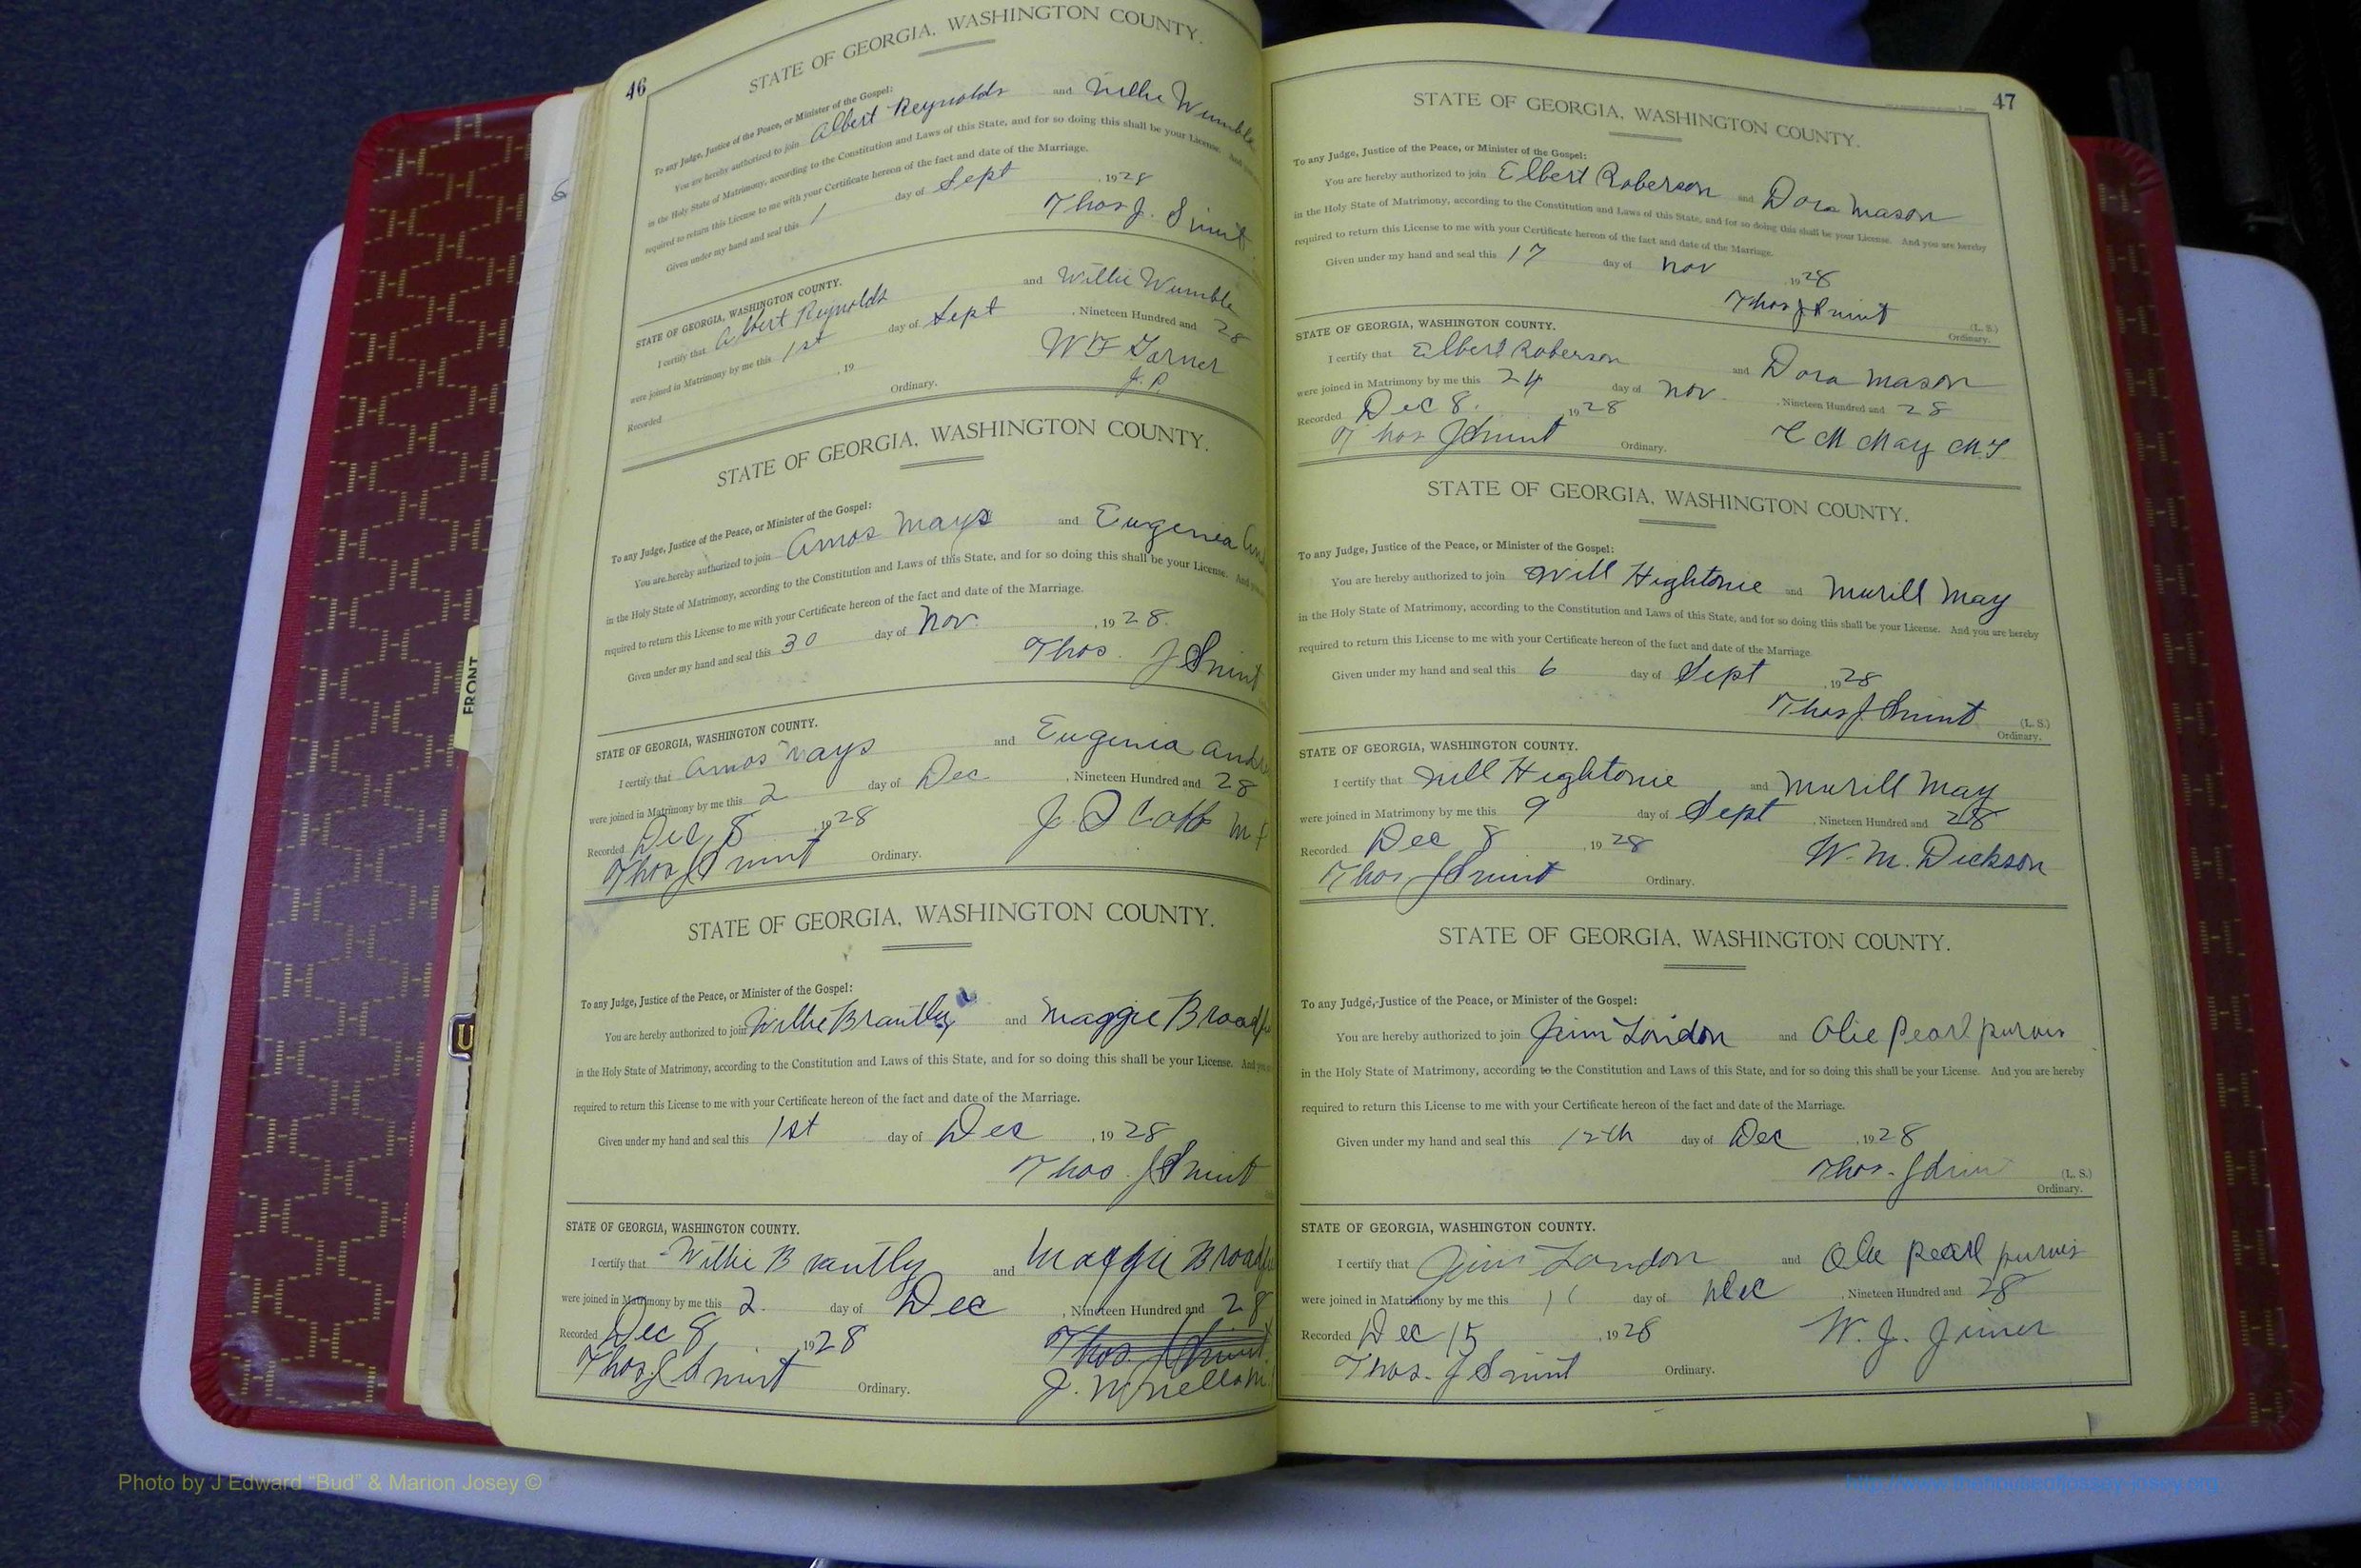 46
STATE OF GEORGIA, WASHINGTON COUNTY.
To any Judge, Justice of the Peace, or Minister of the Gospel:
You are hereby authorized to join Albert Reynolds and Willie Wumble
in the Holy State of Matrimony, according to the Constitution and Laws of this State, and for so doing this shall be your License. And
required to return this License to me with your Certificate hereon of the fact and date of the Marriage.
Given under my hand and seal this 1 day of Sept, 1928
Thos J.
STATE OF GEORGIA, WASHINGTON COUNTY.
I certify that Albert Reynolds and Willie Wumble
were joined in Matrimony by me this 1st day of Sept, Nineteen Hundred and 28
Recorded , 19
W F
Ordinary.
J. P.
STATE OF GEORGIA, WASHINGTON COUNTY.
To any Judge, Justice of the Peace, or Minister of the Gospel:
You are hereby authorized to join Amos Mays and Eugenia
in the Holy State of Matrimony, according to the Constitution and Laws of this State, and for so doing this shall be your License. And
required to return this License to me with your Certificate hereon of the fact and date of the Marriage.
Given under my hand and seal this 30 day of Nov., 1928.
Thos. J
STATE OF GEORGIA, WASHINGTON COUNTY.
I certify that Amos Mays and Eugenia
were joined in Matrimony by me this 2 day of Dec, Nineteen Hundred and 28
Recorded Dec 8, 1928
Thos J Ordinary.
STATE OF GEORGIA, WASHINGTON COUNTY.
To any Judge, Justice of the Peace, or Minister of the Gospel:
You are hereby authorized to join Willie Brantly and Maggie
in the Holy State of Matrimony, according to the Constitution and Laws of this State, and for so doing this shall be your License. And
required to return this License to me with your Certificate hereon of the fact and date of the Marriage.
Given under my hand and seal this 1st day of Dec, 1928
Thos. J
STATE OF GEORGIA, WASHINGTON COUNTY.
I certify that Willie Brantly and Maggie
were joined in Matrimony by me this 2. day of Dec, Nineteen Hundred and 28
Recorded Dec 8, 1928
Thos. J Ordinary.
47
STATE OF GEORGIA, WASHINGTON COUNTY.
To any Judge, Justice of the Peace, or Minister of the Gospel:
You are hereby authorized to join Elbert Roberson and Dora Mason
in the Holy State of Matrimony, according to the Constitution and Laws of this State, and for so doing this shall be your License. And you are hereby
required to return this License to me with your Certificate hereon of the fact and date of the Marriage.
Given under my hand and seal this 17 day of Nov, 1928
Thos J (L. S.)
Ordinary.
STATE OF GEORGIA, WASHINGTON COUNTY.
I certify that Elbert Roberson and Dora Mason
were joined in Matrimony by me this 24 day of Nov., Nineteen Hundred and 28
Recorded Dec 8., 1928
Thos J Ordinary. May
STATE OF GEORGIA, WASHINGTON COUNTY.
To any Judge, Justice of the Peace, or Minister of the Gospel:
You are hereby authorized to join Will Hightonie and Murill May
in the Holy State of Matrimony, according to the Constitution and Laws of this State, and for so doing this shall be your License. And you are hereby
required to return this License to me with your Certificate hereon of the fact and date of the Marriage.
Given under my hand and seal this 6 day of Sept, 1928
Thos J (L. S.)
Ordinary.
STATE OF GEORGIA, WASHINGTON COUNTY.
I certify that Will Hightonie and Murill May
were joined in Matrimony by me this 9 day of Sept, Nineteen Hundred and 28
Recorded Dec 8, 1928 W. M. Dickson
Thos J Ordinary.
STATE OF GEORGIA, WASHINGTON COUNTY.
To any Judge, Justice of the Peace, or Minister of the Gospel:
You are hereby authorized to join Jim London and Olie Pearl Purvis
in the Holy State of Matrimony, according to the Constitution and Laws of this State, and for so doing this shall be your License. And you are hereby
required to return this License to me with your Certificate hereon of the fact and date of the Marriage.
Given under my hand and seal this 12th day of Dec, 1928
Thos. J (L. S.)
Ordinary.
STATE OF GEORGIA, WASHINGTON COUNTY.
I certify that Jim London and Olie Pearl Purvis
were joined in Matrimony by me this day of Dec, Nineteen Hundred and 28
Recorded Dec 15, 1928 W. J. Joiner
Thos. J Ordinary.
FRONT
Photo by J Edward “Bud” & Marion Josey ©
http://www.thehouseofjossey-josey.org